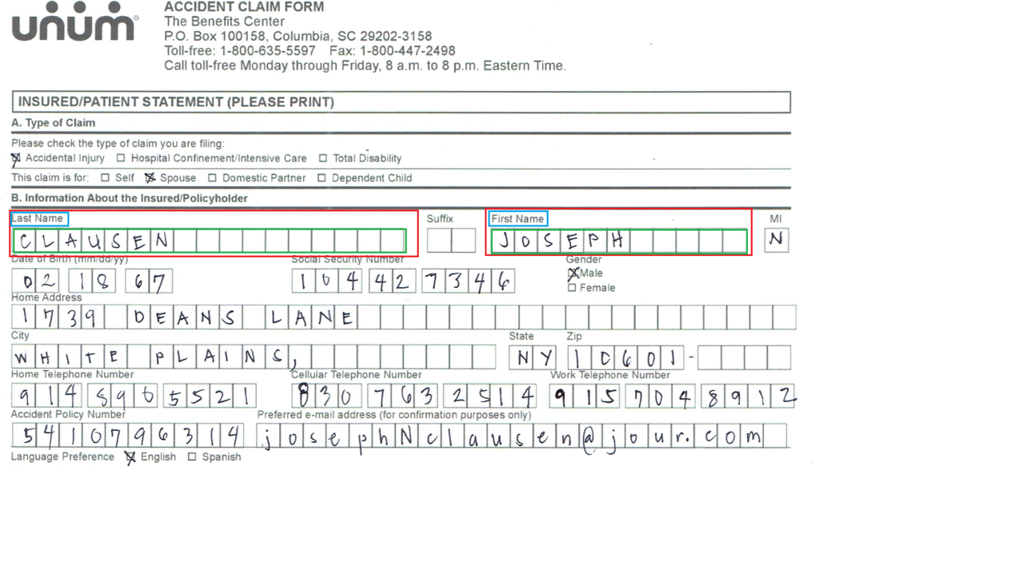 unum®
ACCIDENT CLAIM FORM
The Benefits Center
P.O. Box 100158, Columbia, SC 29202-3158
Toll-free: 1-800-635-5597 Fax: 1-800-447-2498
Call toll-free Monday through Friday, 8 a.m. to 8 p.m. Eastern Time.
INSURED/PATIENT STATEMENT (PLEASE PRINT)
A. Type of Claim
Please check the type of claim you are filing:
Accidental Injury Hospital Confinement/Intensive Care Total Disability
This claim is for: Self Spouse Domestic Partner Dependent Child
B. Information About the Insured/Policyholder
Last Name Suffix First Name MI
CLAUSEN JOSEPH N
Date of Birth (mm/dd/yy) Social Security Number Gender
02 18 67 104 42 7346 Male
Female
Home Address
1739 DEANS LANE
City State Zip
WHITE PLAINS, NY 10601-
Home Telephone Number Cellular Telephone Number Work Telephone Number
914 896 5521 830 763 2514 915 704 8912
Accident Policy Number Preferred e-mail address (for confirmation purposes only)
5410796314 josephNclausen@jour.com
Language Preference English Spanish